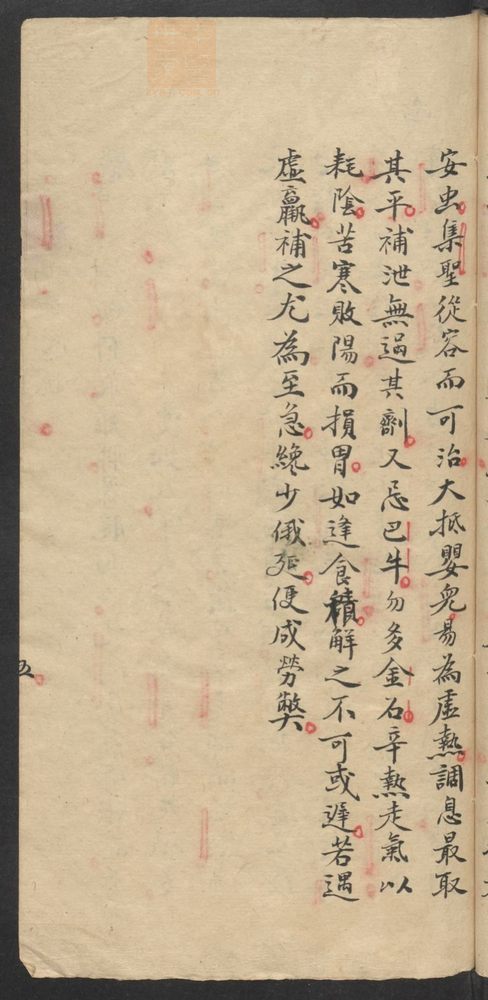 安虫集聖從容而可治大抵嬰兒易為虛熱調息最取
其平補泄無過其劑又忌巴牛勿多金石辛熱走氣以
耗陰苦寒敗陽而損胃如逢食積解之不可或遲若遇
虛羸補之尤為至急纔少俄延便成勞弊
五